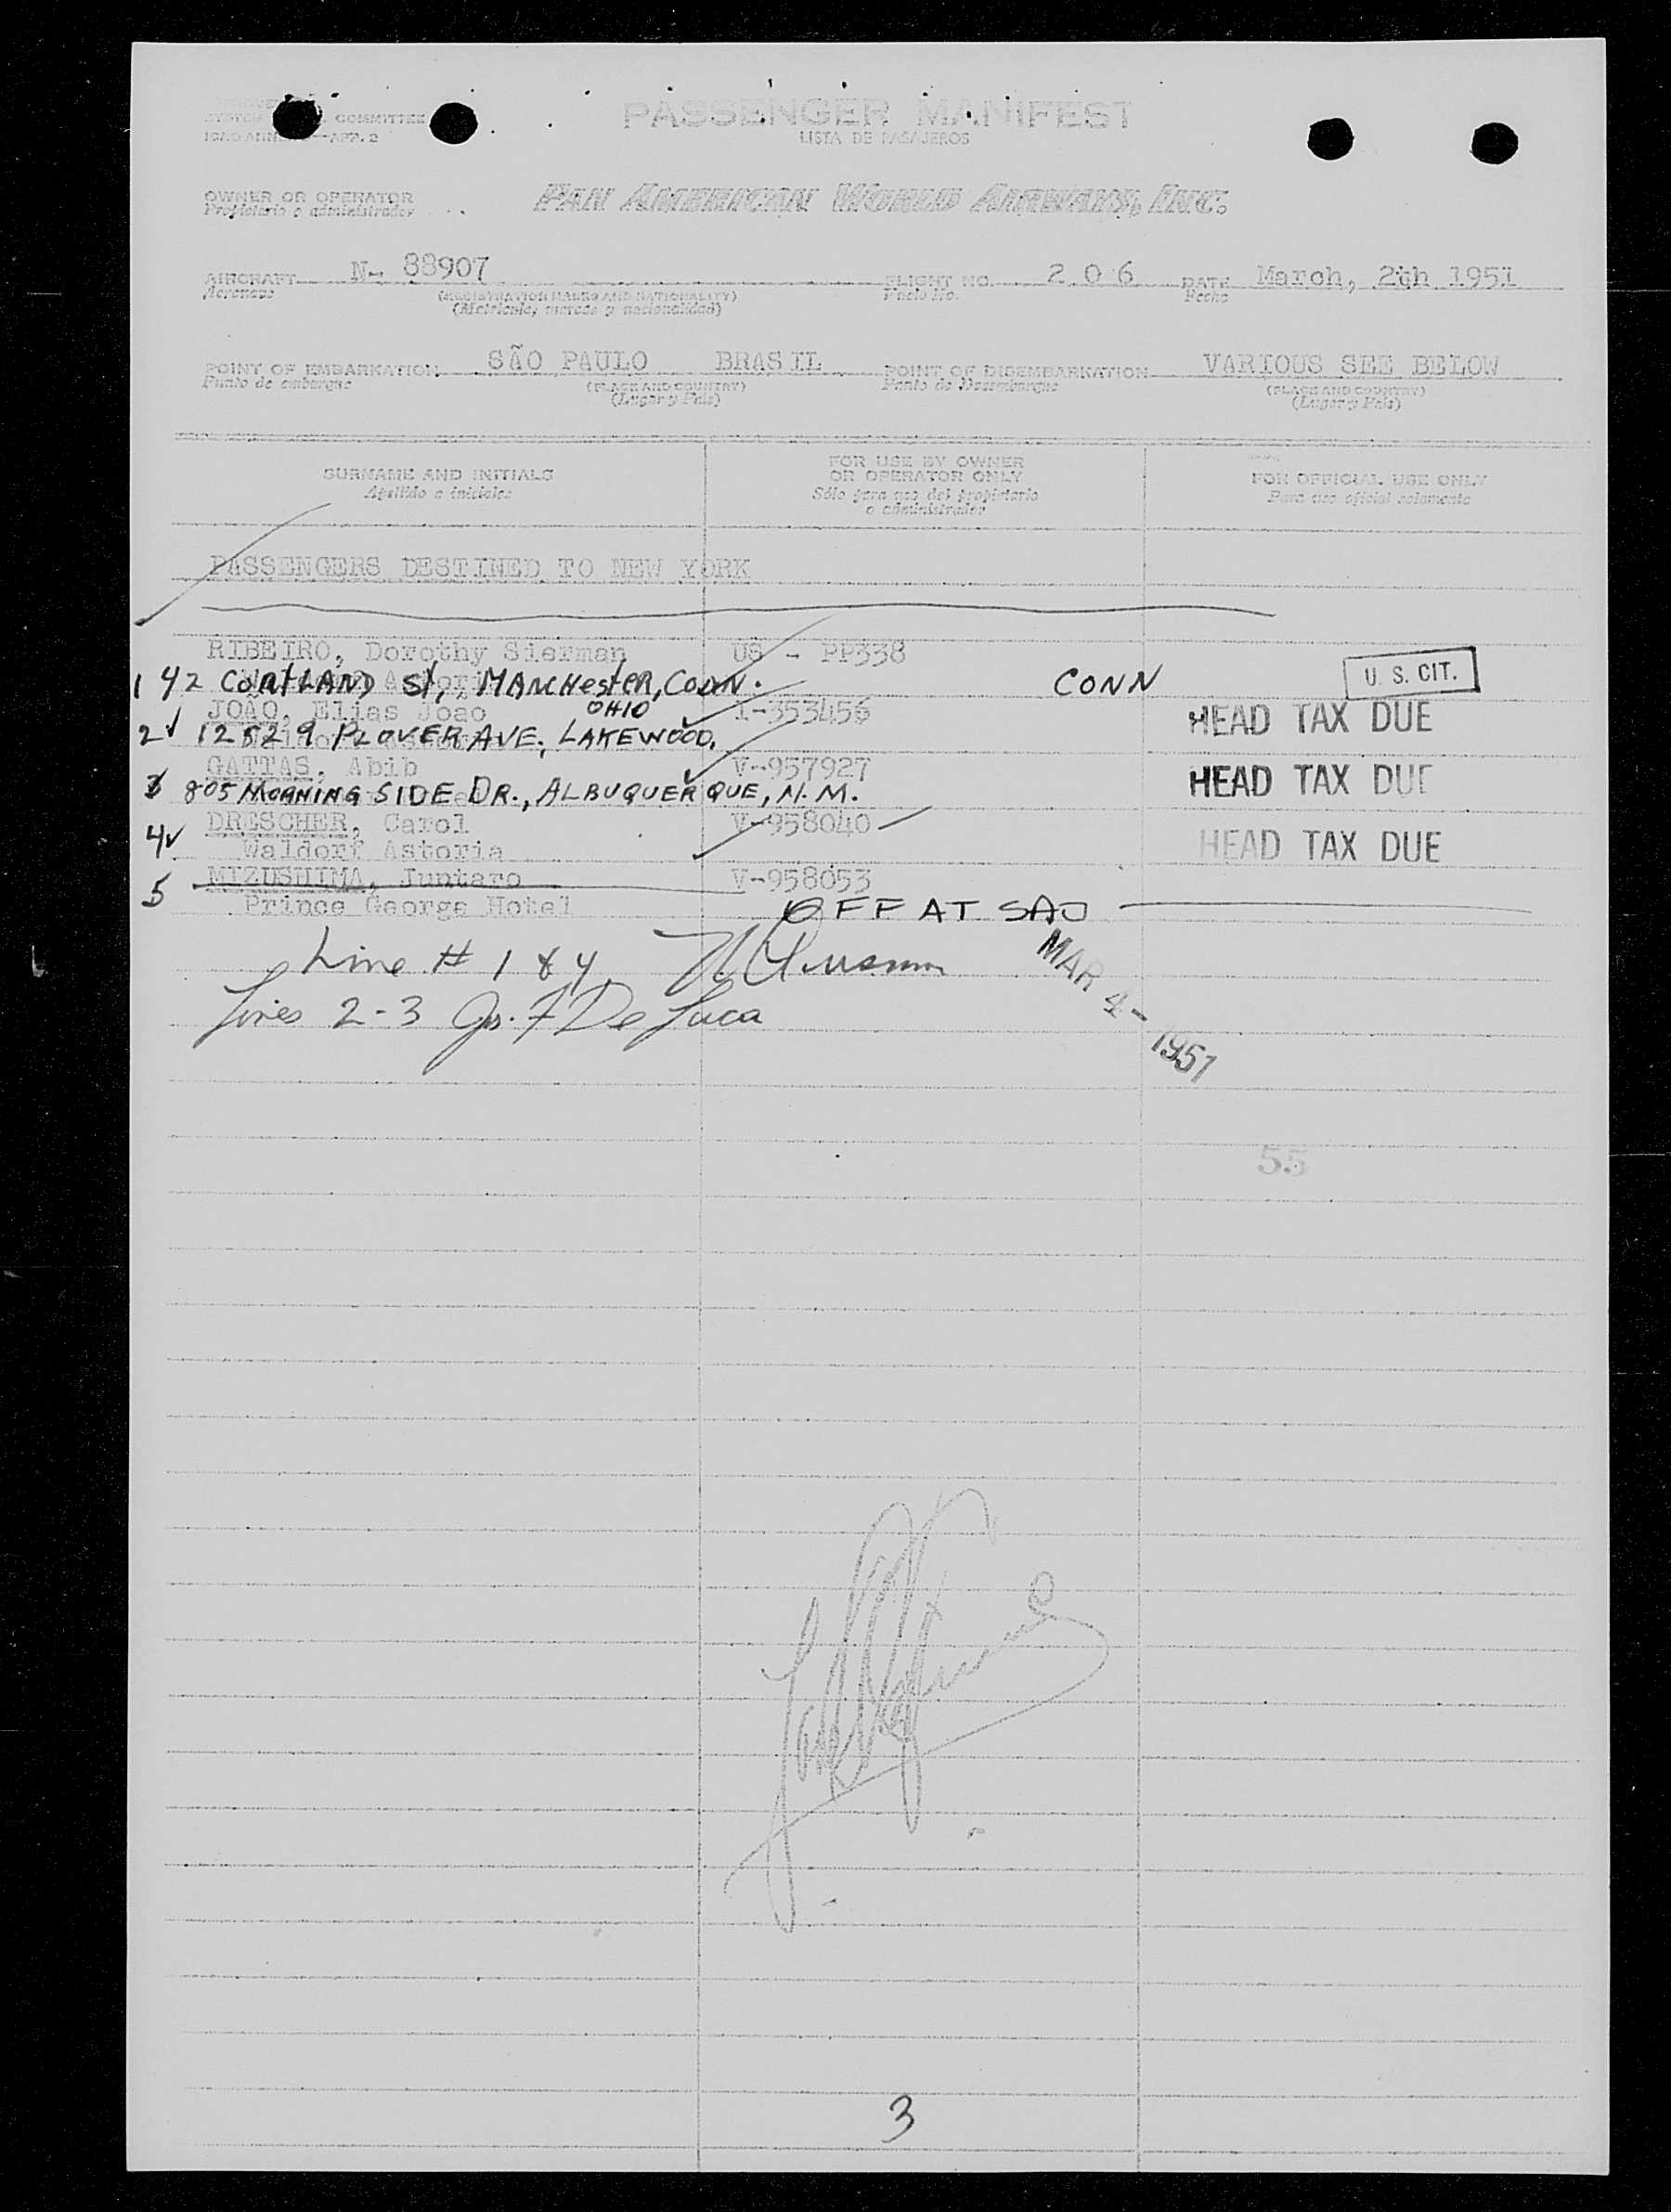 COMMITTEE
APP. 2
PASSENGER MANIFEST
LISTA DE PASAJEROS
OWNER OR OPERATOR
Propietario o administrador
PAN AMERICAN WORLD AIRWAYS, INC.
AIRCRAFT N- 88907 FLIGHT NO. 2 0 6 DATE March, 2th 1951
Aeronave (REGISTRATION MARKS AND NATIONALITY) Vuelo No. Fecha
(Matricula, marcas y nacionalidad)
POINT OF EMBARKATION SÃO PAULO BRASIL POINT OF DISEMBARKATION VARIOUS SEE BELOW
Punto de embarque (PLACE AND COUNTRY) Punto de Desembarque (PLACE AND COUNTRY)
(Lugar y País) (Lugar y País)
SURNAME AND INITIALS FOR USE BY OWNER OR OPERATOR ONLY FOR OFFICIAL USE ONLY
Apellido e iniciales Sólo para uso del propietario o administrador Para uso oficial solamente
PASSENGERS DESTINED TO NEW YORK
RIBEIRO, Dorothy Sierman US - PP338
1 42 CORTLAND St, MANCHESTER, CONN. CONN U. S. CIT.
JOÃO, Elias Joao I-353456 HEAD TAX DUE
OHIO
2 12529 PLOVER AVE, LAKEWOOD,
GATTAS, Abib V-957927 HEAD TAX DUE
3 805 MORNING SIDE DR., ALBUQUERQUE, N.M.
4 DRESCHER, Carol V-958040
Waldorf Astoria HEAD TAX DUE
5 MIZUSHIMA, Juntaro V-958053
Prince George Hotel OFF AT SAO
Line # 1 & 4
MAR 4 - 1951
Lines 2-3 Gs. F De Luca
55
3